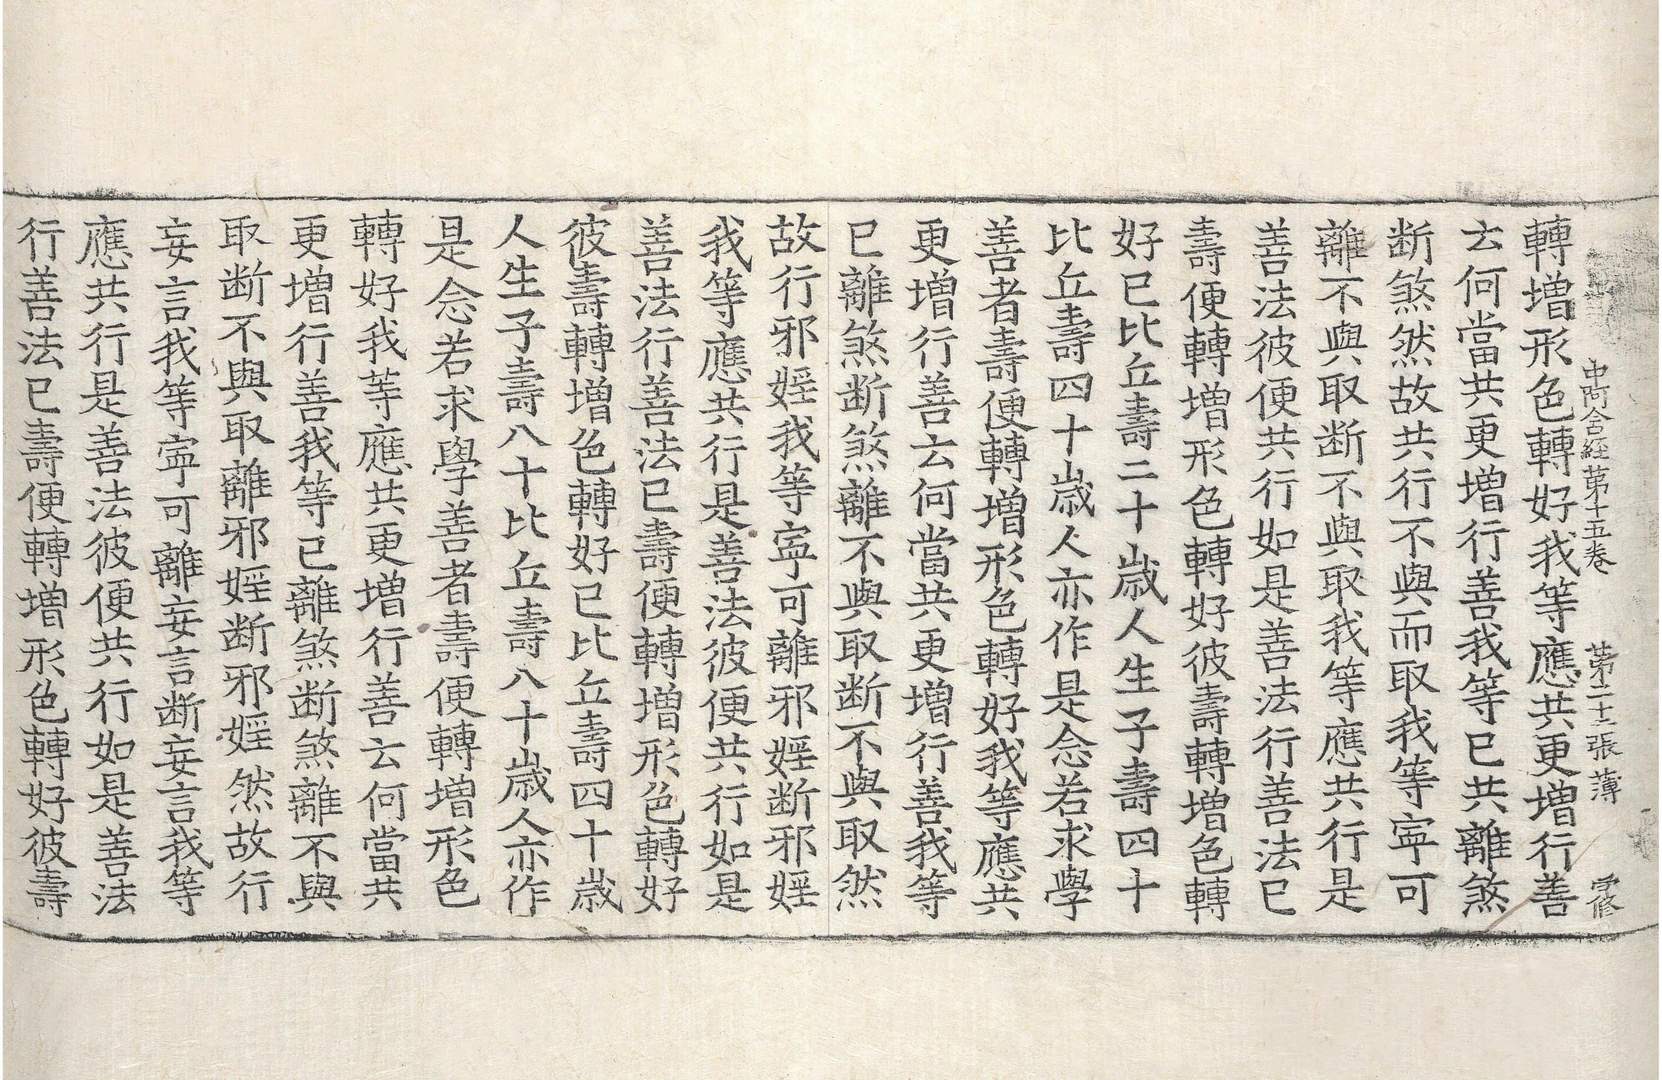 中阿含経苐十五巻 苐二十三張 薄
轉増形色轉好我等應共更増行善
云何當共更増行善我等已共離煞
断煞然故共行不與而取我等寧可
離不與取断不與取我等應共行是
善法彼便共行如是善法行善法已
壽便轉増形色轉好彼壽轉増色轉
好已比丘壽二十歳人生子壽四十
比丘壽四十歳人亦作是念若求學
善者壽便轉増形色轉好我等應共
更増行善云何當共更増行善我等
已離煞断煞離不與取断不與取然
故行邪婬我等寧可離邪婬断邪婬
我等應共行是善法彼便共行如是
善法行善法已壽便轉増形色轉好
彼壽轉増色轉好已比丘壽四十歳
人生子壽八十比丘壽八十歳人亦作
是念若求學善者壽便轉増形色
轉好我等應共更増行善云何當共
更増行善我等已離煞断煞離不與
取断不與取離邪婬断邪婬然故行
妄言我等寧可離妄言断妄言我等
應共行是善法彼便共行如是善法
行善法已壽便轉増形色轉好彼壽